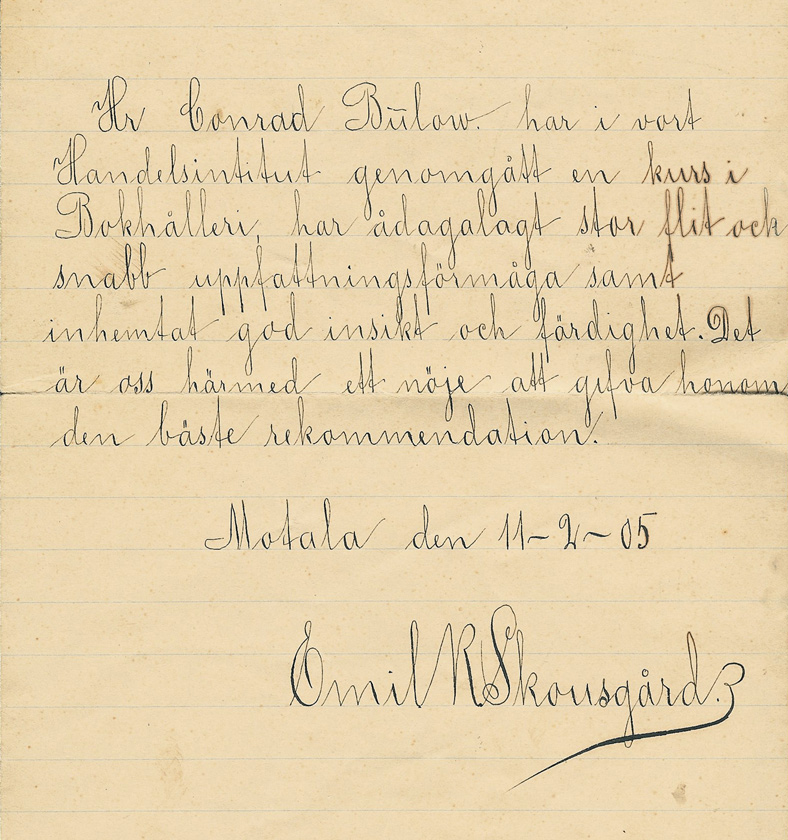 Hr Conrad Bülow. har i vort
Handelsintitut genomgått en kurs i
Bokhålleri, har ådagalagt stor flit ock
snabb uppfattningsförmåga samt
inhemtat god insikt och färdighet. Det
är oss härmed ett nöje att gifva honom
den bäste rekommendation.
Motala den 11-2-05
Emil R Skousgård.